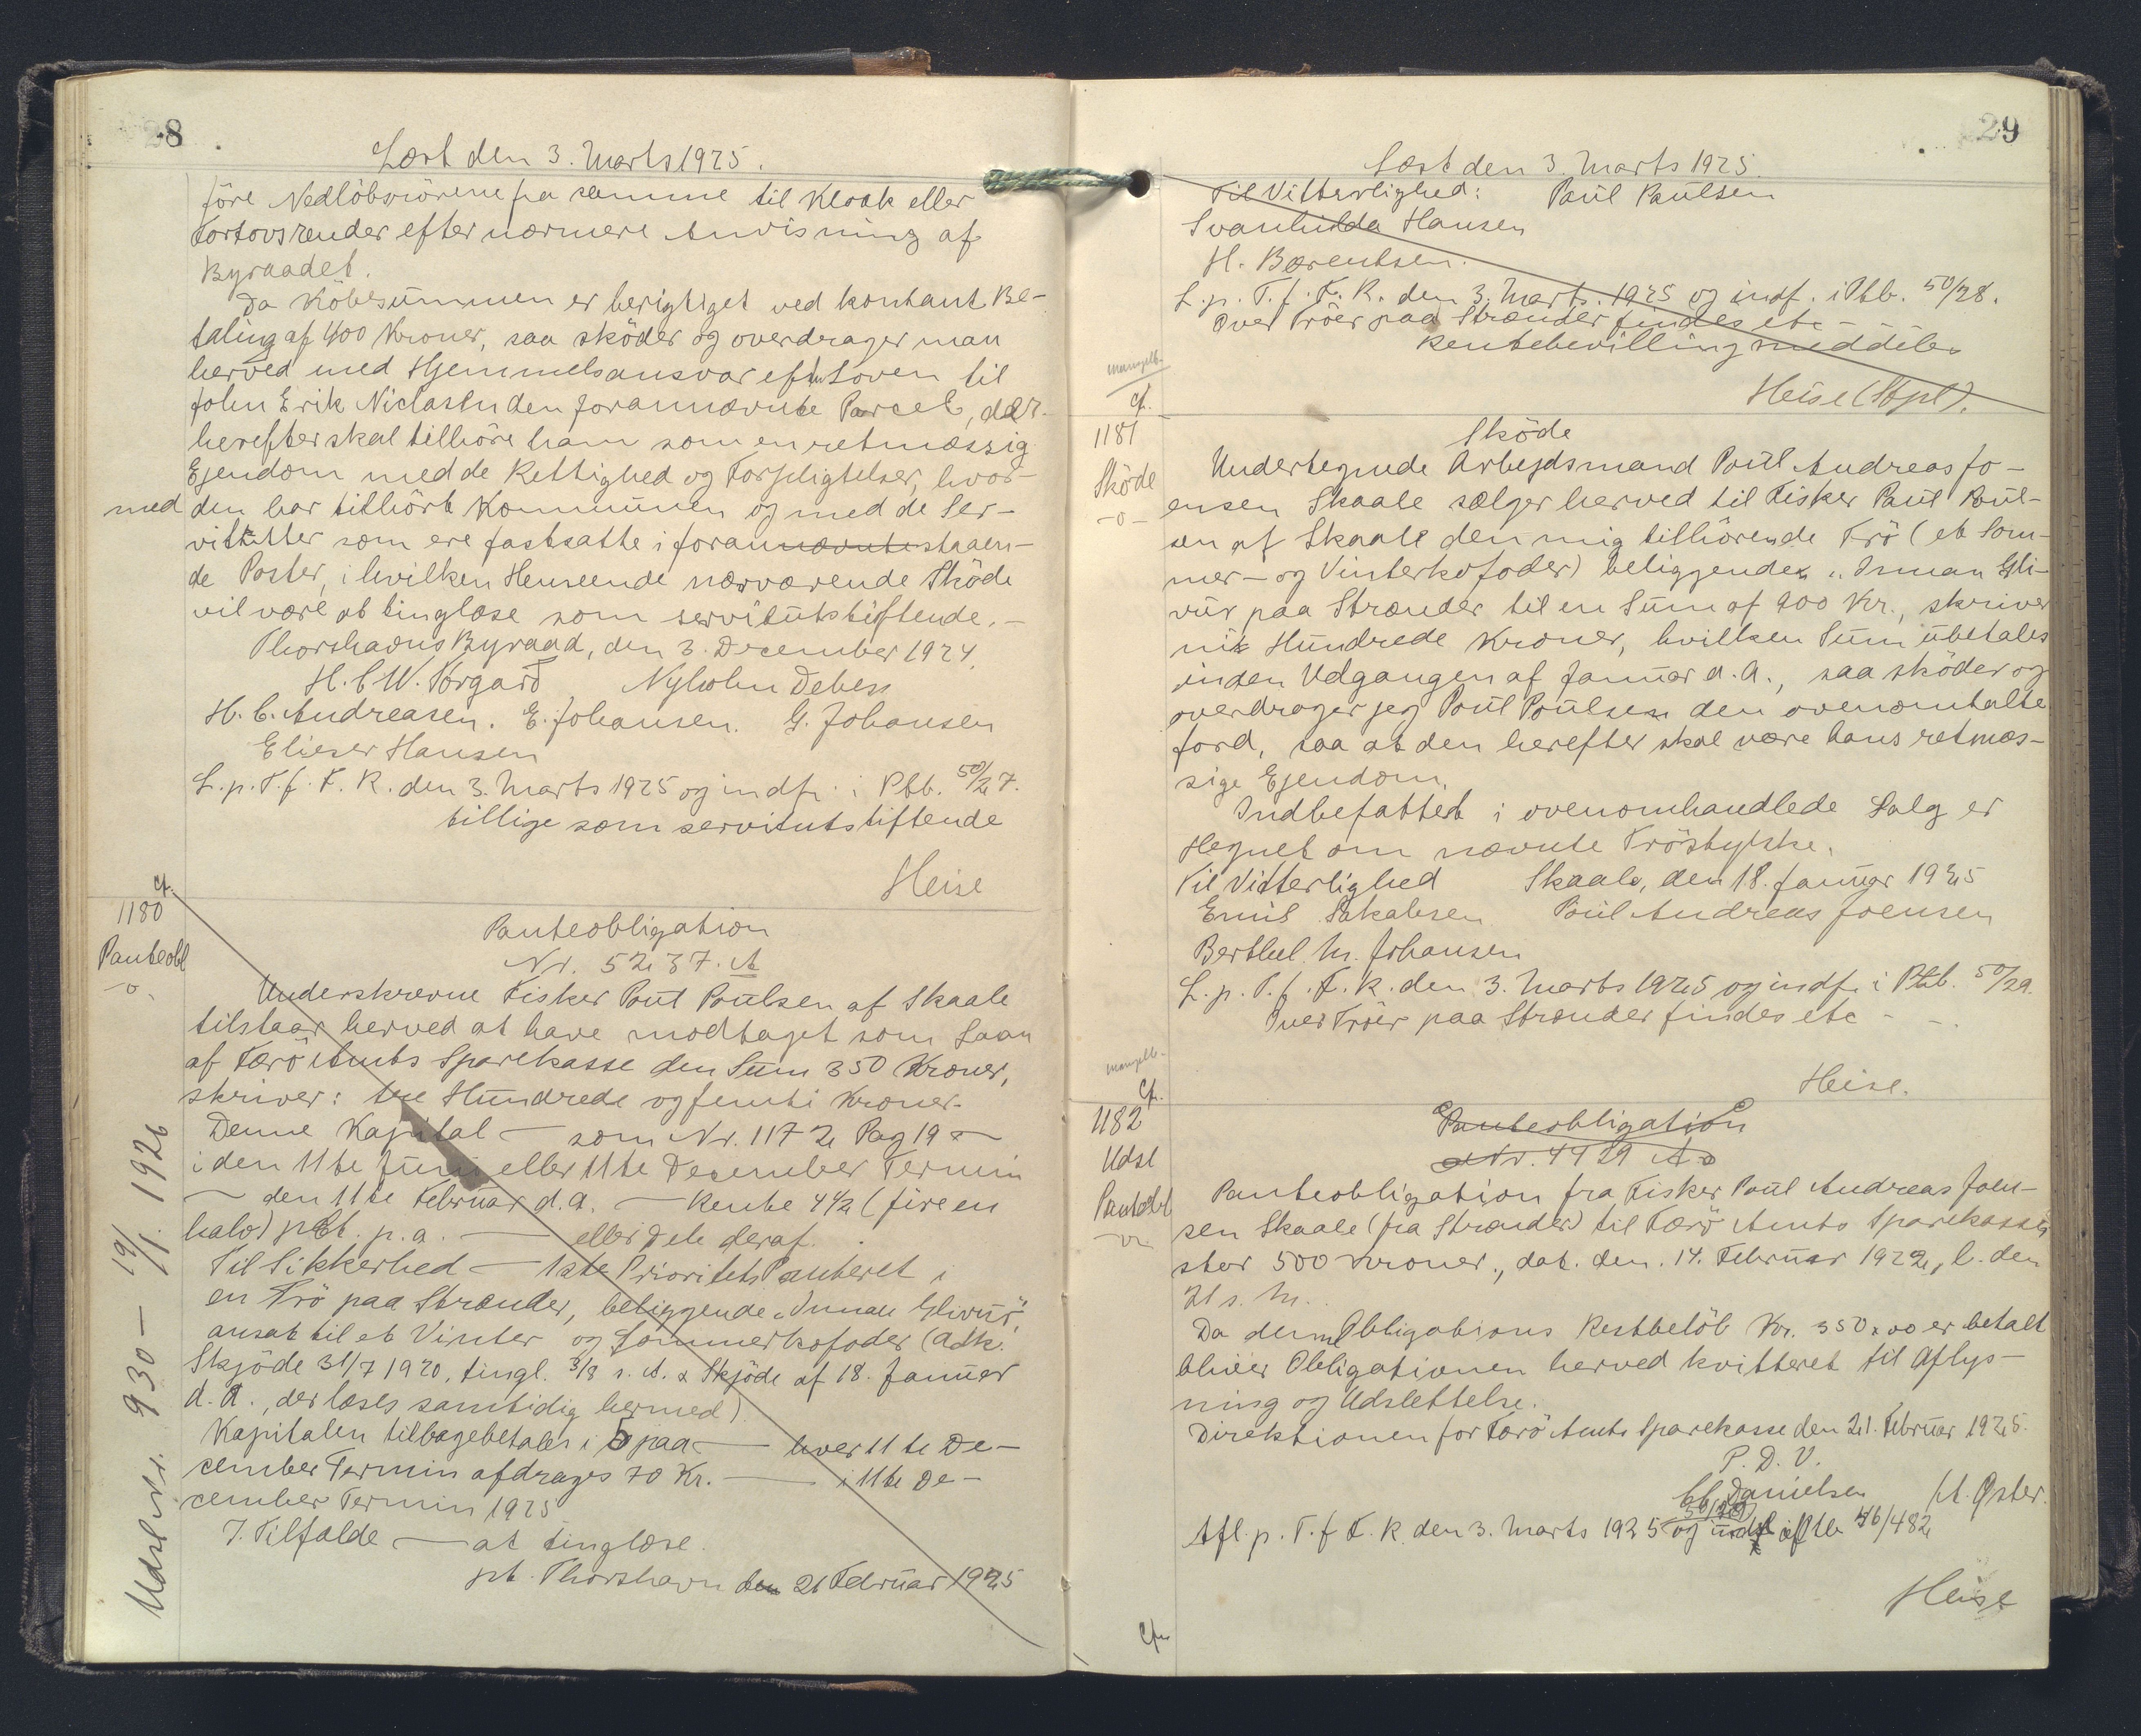 28
Læst den 3. Marts 1925.
före Nedlöbsrörene fra samme til Kloak eller
Fortovsrender efter nærmere Anvisning af
Byraadet.
Da Köbesummen er berigtiget ved kontant Be-
taling af 400 Kroner, saa sköder og overdrager man
herved med Hjemmelsansvar efter Loven til
John Erik Niclasen den forannævnte Parcel, der
herefter skal tilhöre ham som en retmæssig
Ejendom med de Rettighed og Forpligtelser, hvor-
med den har tilhört Kommunen og med de Ser-
vitutter som ere fastsatte i forannævnte staaen-
de Poster, i hvilken Henseende nærværende Sköde
vil være at tinglæse som servitutstiftende.-
Thorshavns Byraad, den 3. December 1924.
H. C. W. Törgard Nyholm Debess
H. C. Andreasen. E. Johansen. G. Johansen
Elieser Hansen
L. p. T. f. F. R. den 3. Marts 1925 og indf. i Ptb. 50/27.
tillige som servitutstiftende
Heise
cf.
1180
Panteobl
-o-
Panteobligation
Nr. 5237. A
Underskrevne Fisker Poul Poulsen af Skaale
tilstaar herved at have modtaget som Laan
af Færö Amts Sparekasse den Sum 350 Kroner,
skriver: tre Hundrede og femti Kroner.
Denne Kapital — som Nr. 1172 Pag 19 —
i den 11te Juni eller 11te December Termin
— den 11te Februar d. A. — Rente 4½ (fire en
halv) pCt. p. a. — eller Dele deraf.
Til Sikkerhed — 1ste Prioritets Panteret i
en Trö paa Strænder, beliggende „Innan Glivur"
ansat til et Vinter og Sommerkofoder (Adk.
Skjöde 31/7 1920, tingl. 3/8 s. A. & Skjöde af 18. Januar
d. A., der læses samtidig hermed).
Kapitalen tilbagebetales i 5 paa — hver 11te De-
cember Termin afdrages 70 Kr. — i 11te De-
cember Termin 1925
I Tilfælde — at tinglæse.
pt. Thorshavn den 21 Februar 1925
Udsl. Nr. 930 — 19/1. 1926
29
Læst den 3. Marts 1925.
Til Vitterlighed: Poul Poulsen
Svanhilda Hansen
H. Bærentsen.
L. p. T. f. F. R. den 3. Marts. 1925 og indf. i Ptb. 50/28.
Over Tröer paa Strænder findes etc —
Rentebevilling meddeles
Heise (Stpl).
mangelb.
cf.
1181
Sköde
-o-
Sköde
Undertegnede Arbejdsmand Poul Andreas Jo-
ensen Skaale sælger herved til Fisker Poul Poul-
sen af Skaale den mig tilhörende Trö (et Som-
mer- og Vinterkofoder) beliggende „Innan Gli-
vur paa Strænder til en Sum af 900 Kr., skriver
ni Hundrede Kroner, hvilken Sum udbetales
inden Udgangen af Januar d. A., saa sköder og
overdrager jeg Poul Poulsen den ovenomtalte
Jord, saa at den herefter skal være hans retmæs-
sige Ejendom.
Indbefattet i ovenomhandlede Salg er
Hegnet om nævnte Tröstykke.
Til Vitterlighed Skaale, den 18. Januar 1925
Emil Sakalsen Poul Andreas Joensen
Berthel M. Johansen
L. p. T. f. F. R. den 3. Marts 1925 og indf. i Ptb. 50/29.
Over Tröer paa Strænder findes etc - -.
Heise.
mangelb.
cf.
1182
Udsl
Panteobl
Panteobligation
Nr. 4429 A
Panteobligation fra Fisker Poul Andreas Joen-
sen Skaale (fra Strænder) til Færö Amts Sparekasse
stor 500 Kroner., dat. den. 14. Februar 1922, l. den
21 s. M..
Da denne Obligations Restbelöb Kr. 350,00 er betalt
bliver Obligationen herved kvitteret til Aflys-
ning og Udslettelse.
Direktionen for Færö Amts Sparekasse den 21. Februar 1925.
P. D. V.
Danielsen A. Öster.
Afl. p. T. f F. R. den 3. Marts 1925 og indf i Ptb 46/482
Heise
cf.